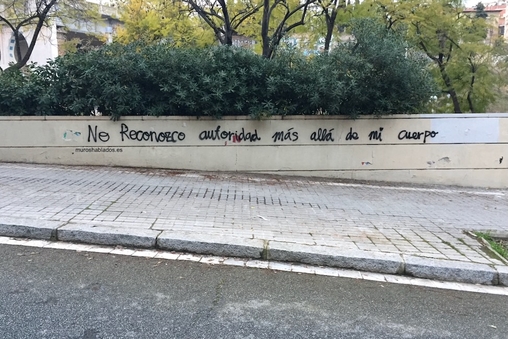 No Reconozco autoridad más allá de mi cuerpo
muroshablados.es